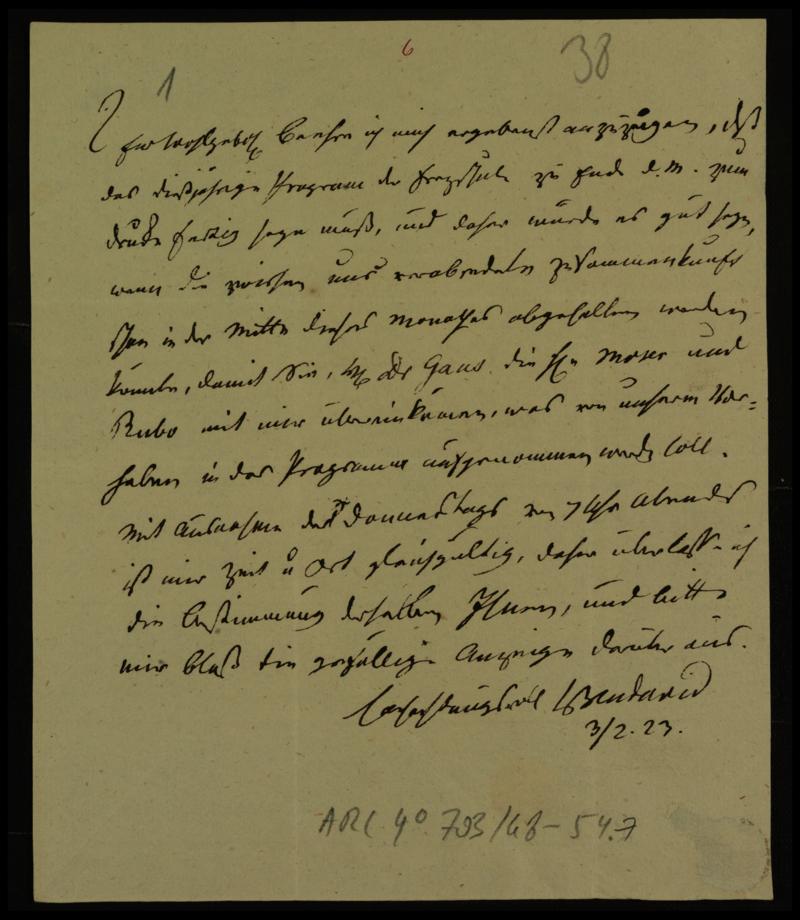 6
1
38
Ew Wohlgeb beehre ich mich ergebenst anzuzeigen, daß
das dießjährige Program der Freyschule zu Ende d. M. zum
Drucke fertig seyn muß, und daher würde es gut seyn,
wenn die zwischen uns verabredete Zusammenkunft
schon in der Mitte dieses Monathes abgehalten werden
könnte, damit Sie, H Dr Gans die HH Moser und
Rubo mit mir übereinkämen, was von unserm Vor=
haben in das Programm aufgenommen werden soll.
Mit Ausnahme des Donnerstags von 7 Uhr Abends
ist mir Zeit u Ort gleichgültig, daher überlasse ich
die Bestimmung derselben Ihnen, und bitte
mir bloß die gefällige Anzeige darüber aus.
Hochachtungsvoll LBendavid
3/2. 23.
ARC 4° 793/48-54.7